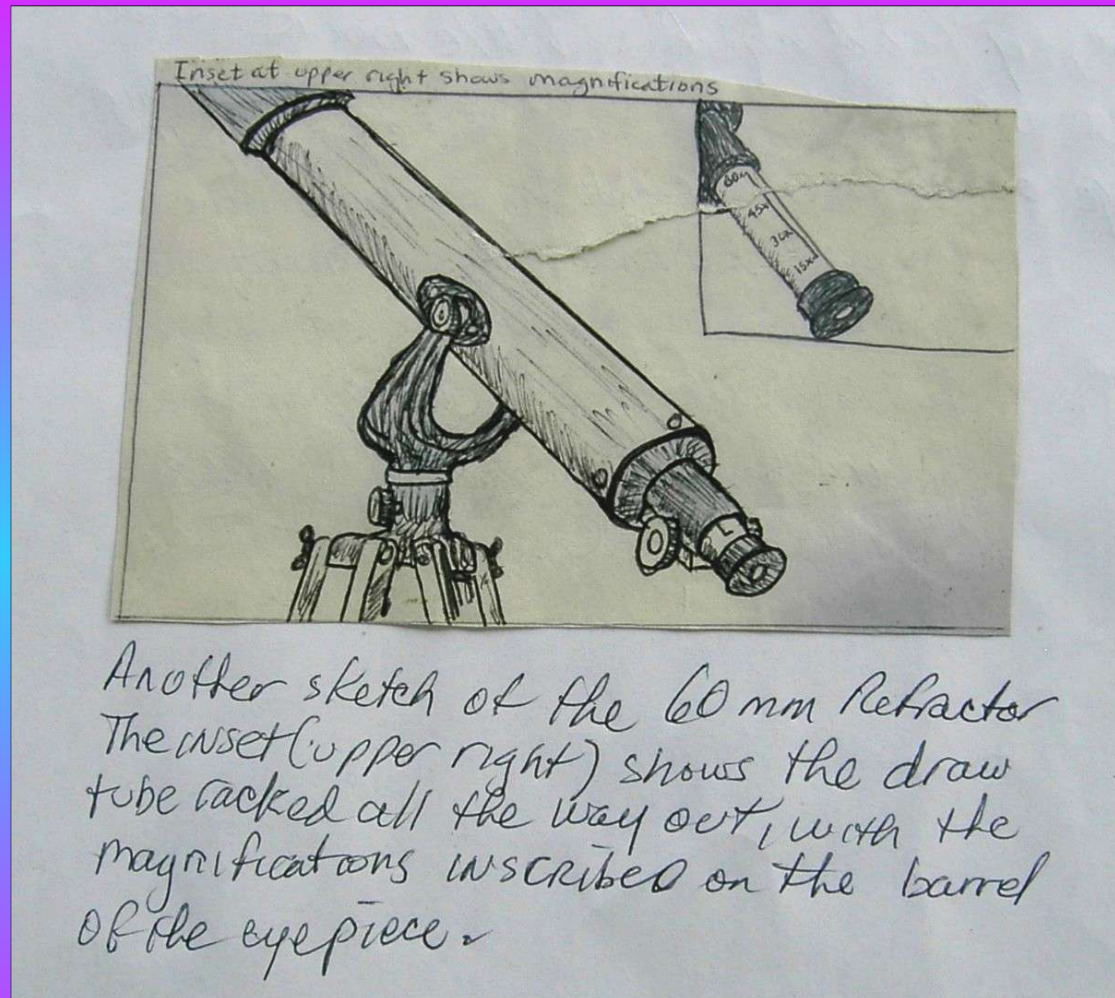 Inset at upper right shows magnifications
60x
45x
30x
15x
Another sketch of the 60 mm Refractor
The inset (upper right) shows the draw
tube racked all the way out, with the
magnifications inscribed on the barrel
of the eyepiece.